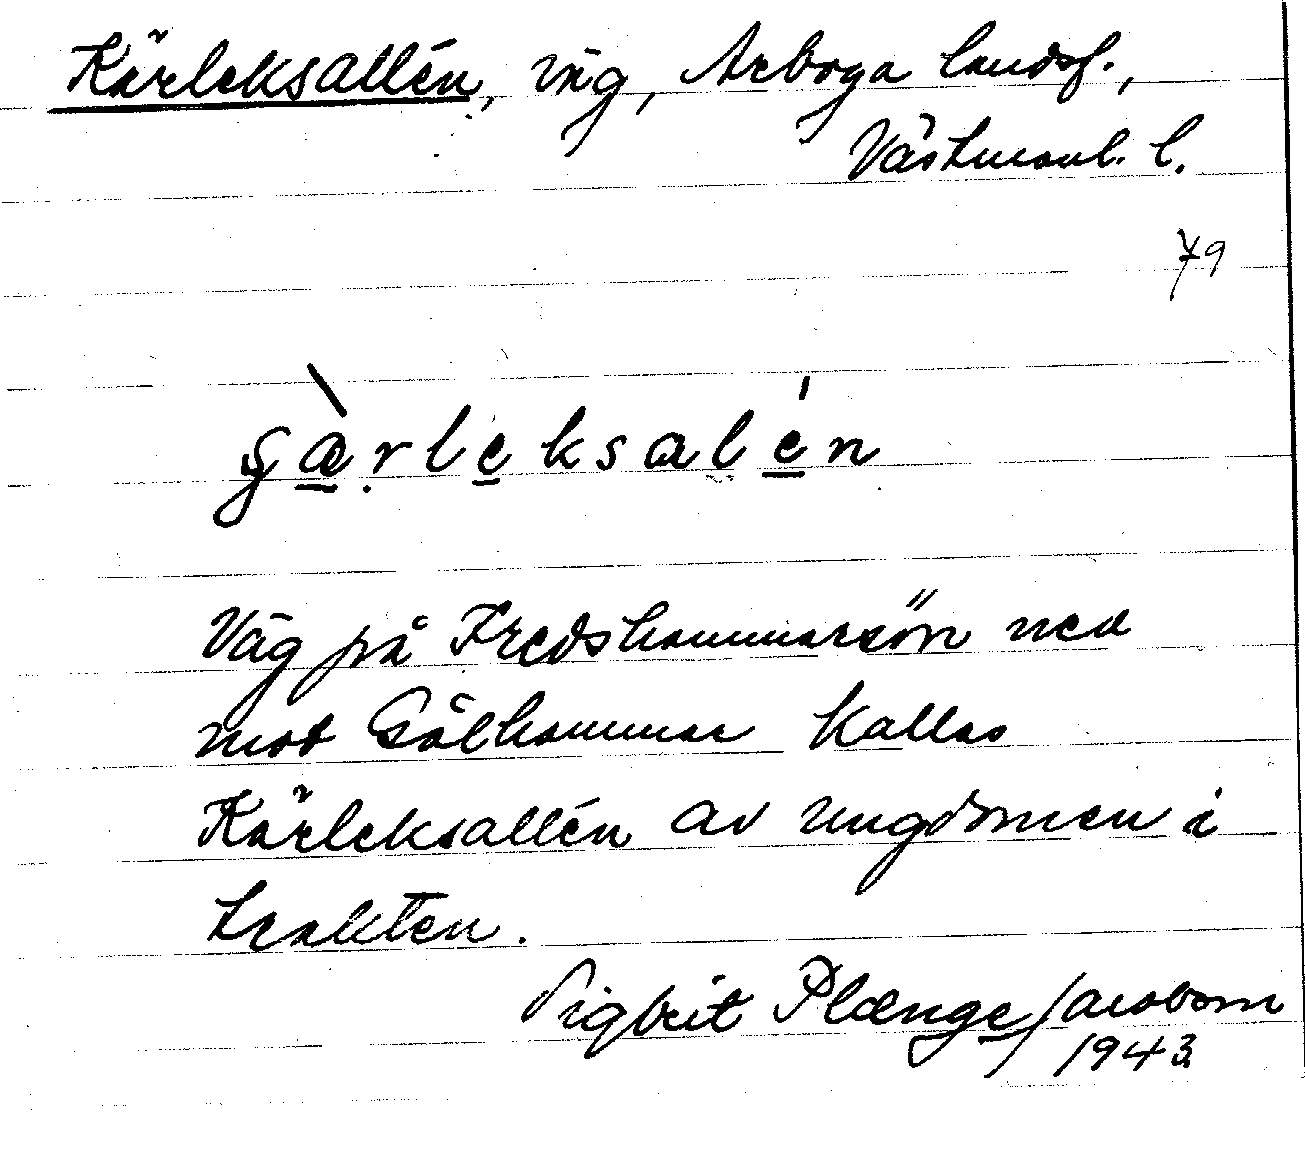 Kärleksallén, väg, Arboga landsf.,
Västmanl. l.
79
Väg på Fredshammarsön ned
mot Gålhammar kallas
Kärleksallén av ungdomen i
trakten.
Sigbrit Plænge Jacobson
1943